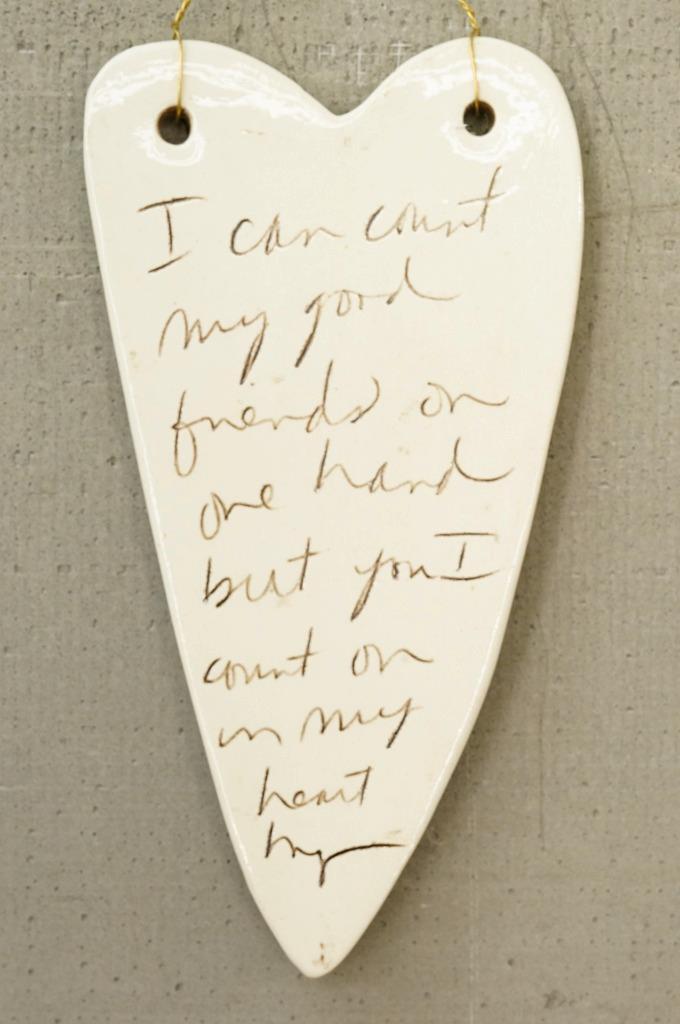 I can count
my good
friends on
one hand
but you I
count on
in my
heart